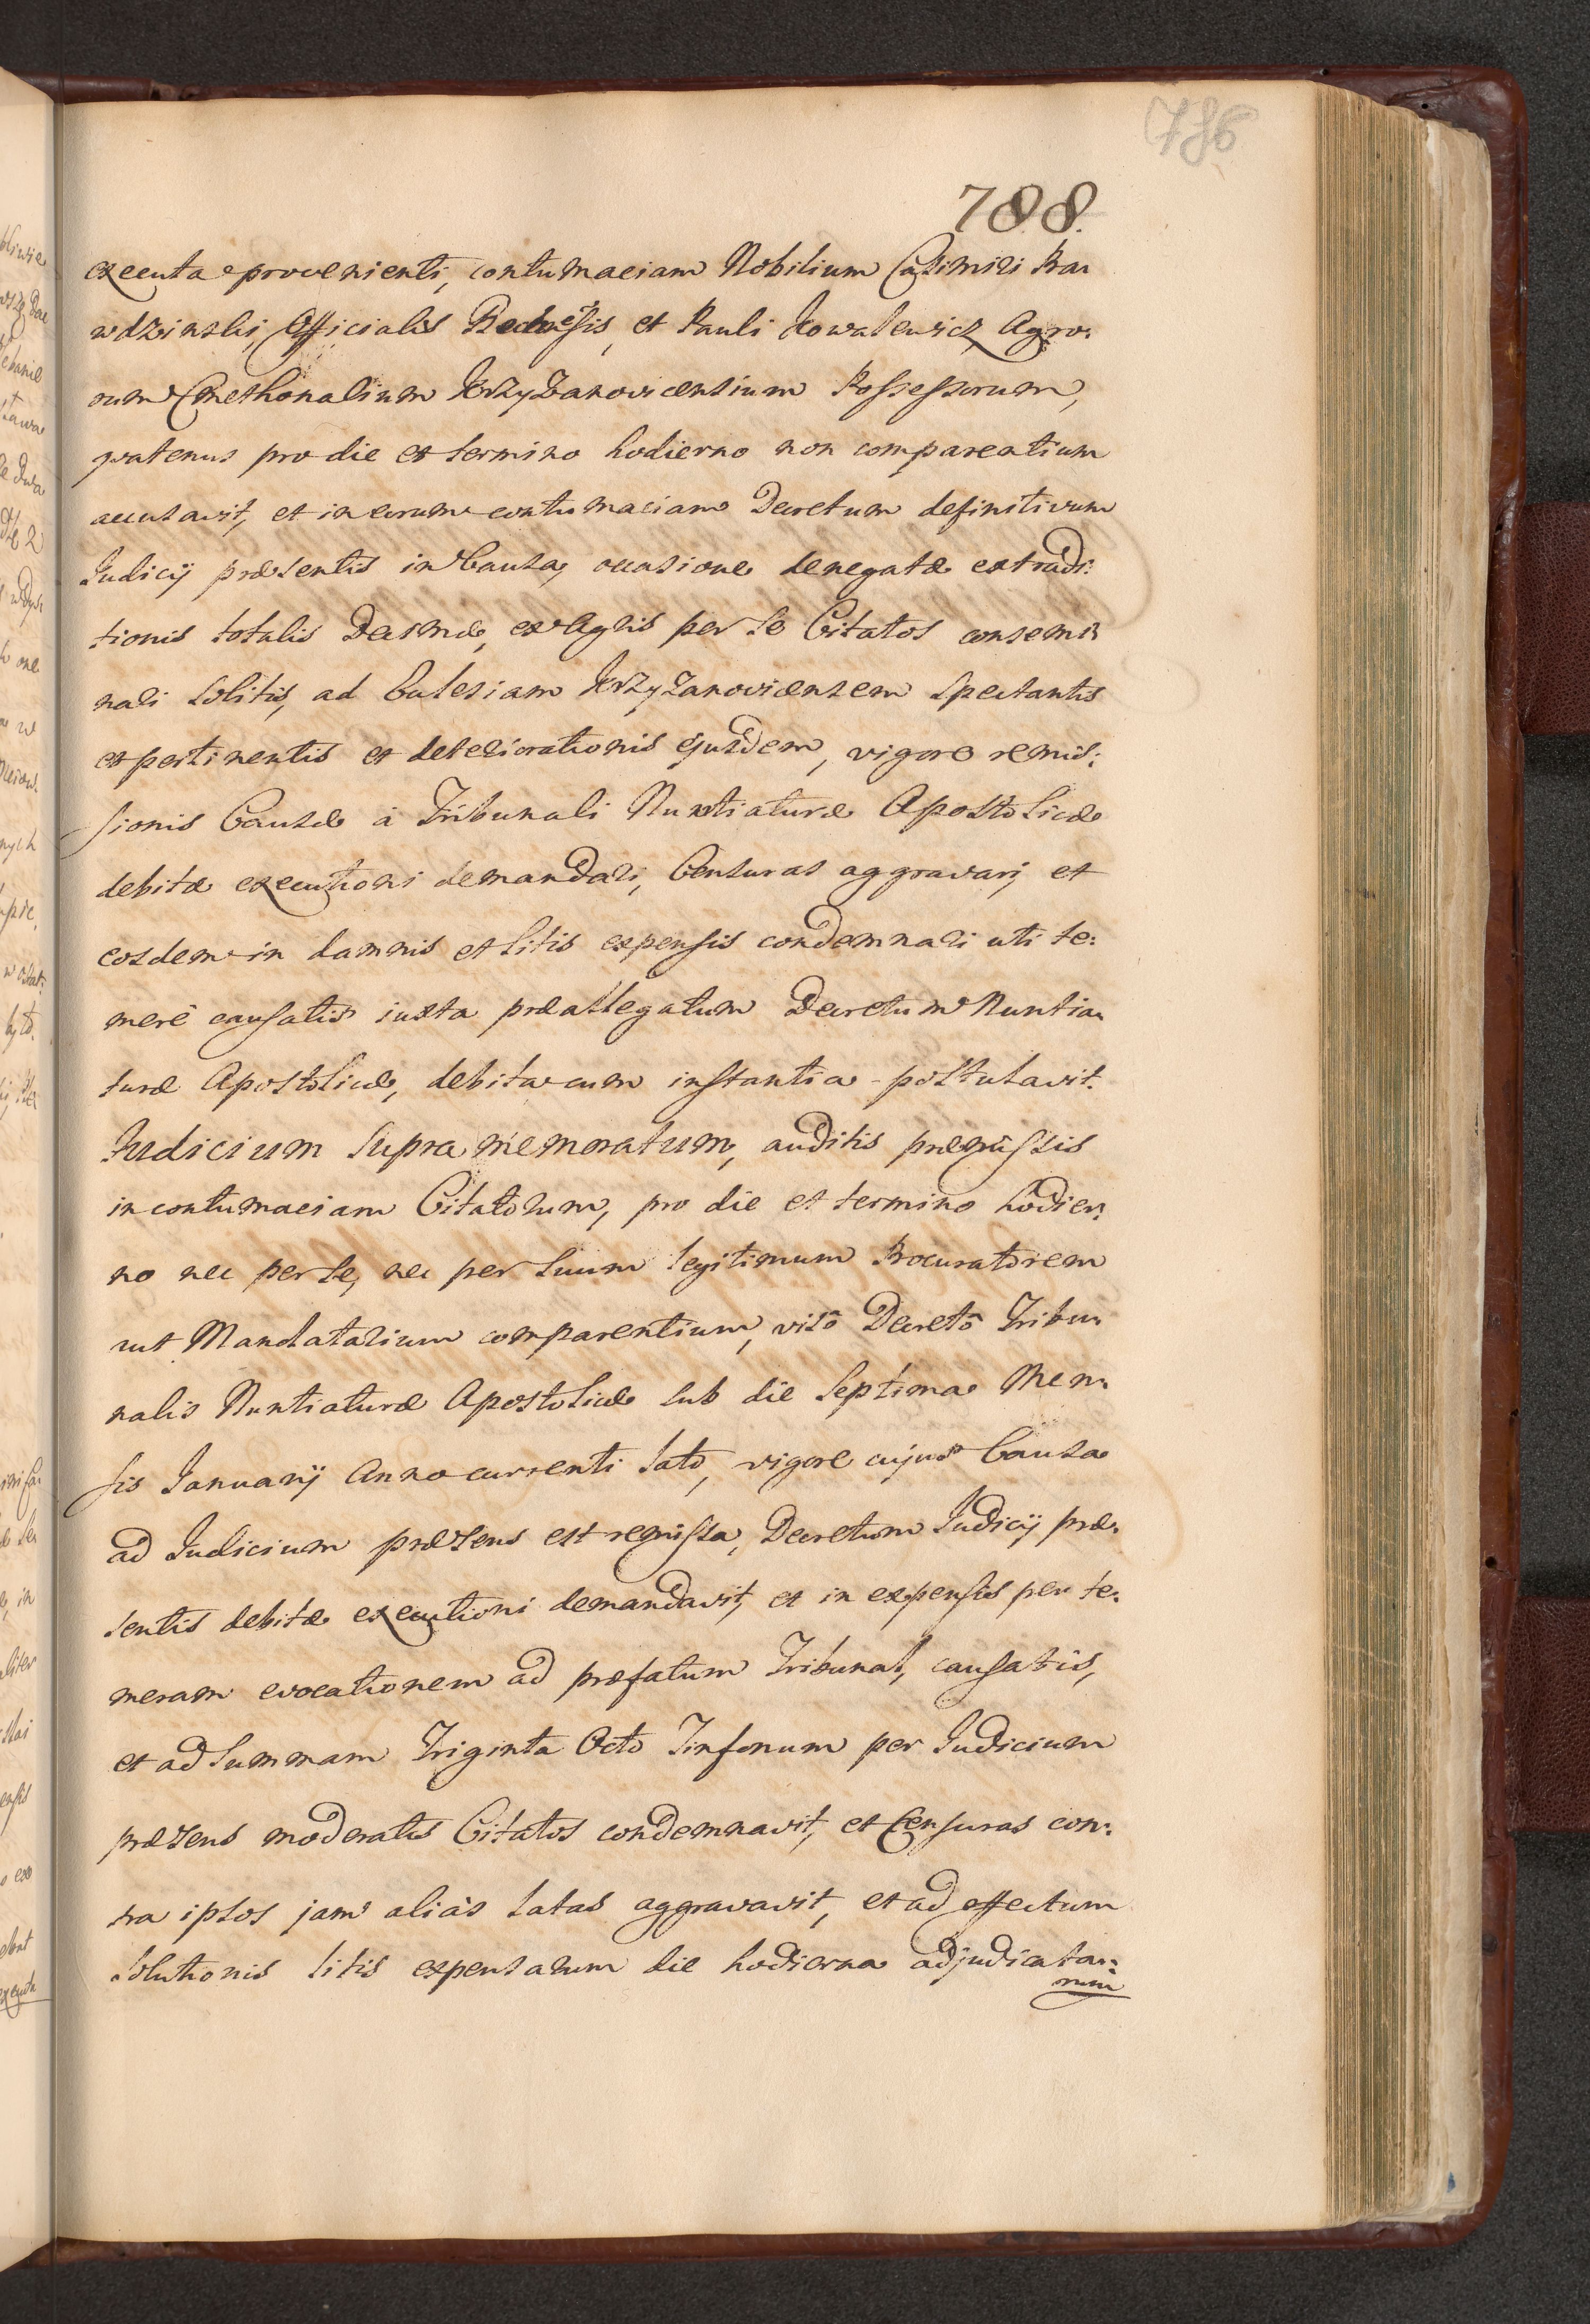 786
788.
executa provenienti, contumaciam Nobilium Casimiri Pra
wdzinski, Officialis et Pauli Kowalewicz Agro:
rum Cmethonalium Krzyzanovicensium Possessorum,
quatenus pro die et termino hodierno non comparentium
accusavit, et in eorum contumaciam Decretum definitivum
Judicij præsentis in Causa, occasione denegatæ extradi:
tionis totalis Decimæ, ex Agris per se Citatos consemi
nari solitis, ad Ecclesiam Krzyzanovicensem spectantis
et pertinentis et deteriorationis ejusdem, vigore remis:
sionis Causæ à Tribunali Nuntiaturæ Apostolicæ
debitæ executioni demandari, Censuras aggravari, et
eosdem in damnis et litis expensis condemnari uti te:
merè causatis iuxta præallegatum Decretum Nuntia
turæ Apostolicæ, debita cum instantia postulavit.
Judicium Supra memoratum, auditis præmissis
in contumaciam Citatorum, pro die et termino hodier:
no nec per se, nec per suum legitimum Procuratorem
aut Mandatarium comparentium, visô Decretô Tribu:
nalis Nuntiaturæ Apostolicæ sub die Septima Men:
sis Januarij Anno currenti lato, vigore cujus Causa
ad Judicium præsens est remissa, Decretum Judicij præ:
sentis debitæ executioni demandavit, et in expensis per te:
meram evocationem ad præfatum Tribunal, causatis,
et ad summam Triginta Octo Tinfonum per Judicium
præsens moderatis Citatos condemnavit, et Censuras con:
tra ipsos jam aliàs latas aggravavit, et ad effectum
solutionis litis expensarum die hodierna adjudicata:
rum